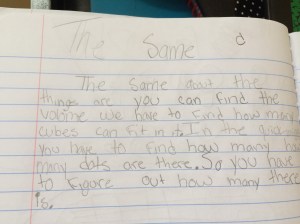 The Same d
The Same the
things are you can find the
volume we have to find how many
cubes can fit in it. In the
you have to find how many
many dots are there. So you have
to figure out how many there
is.